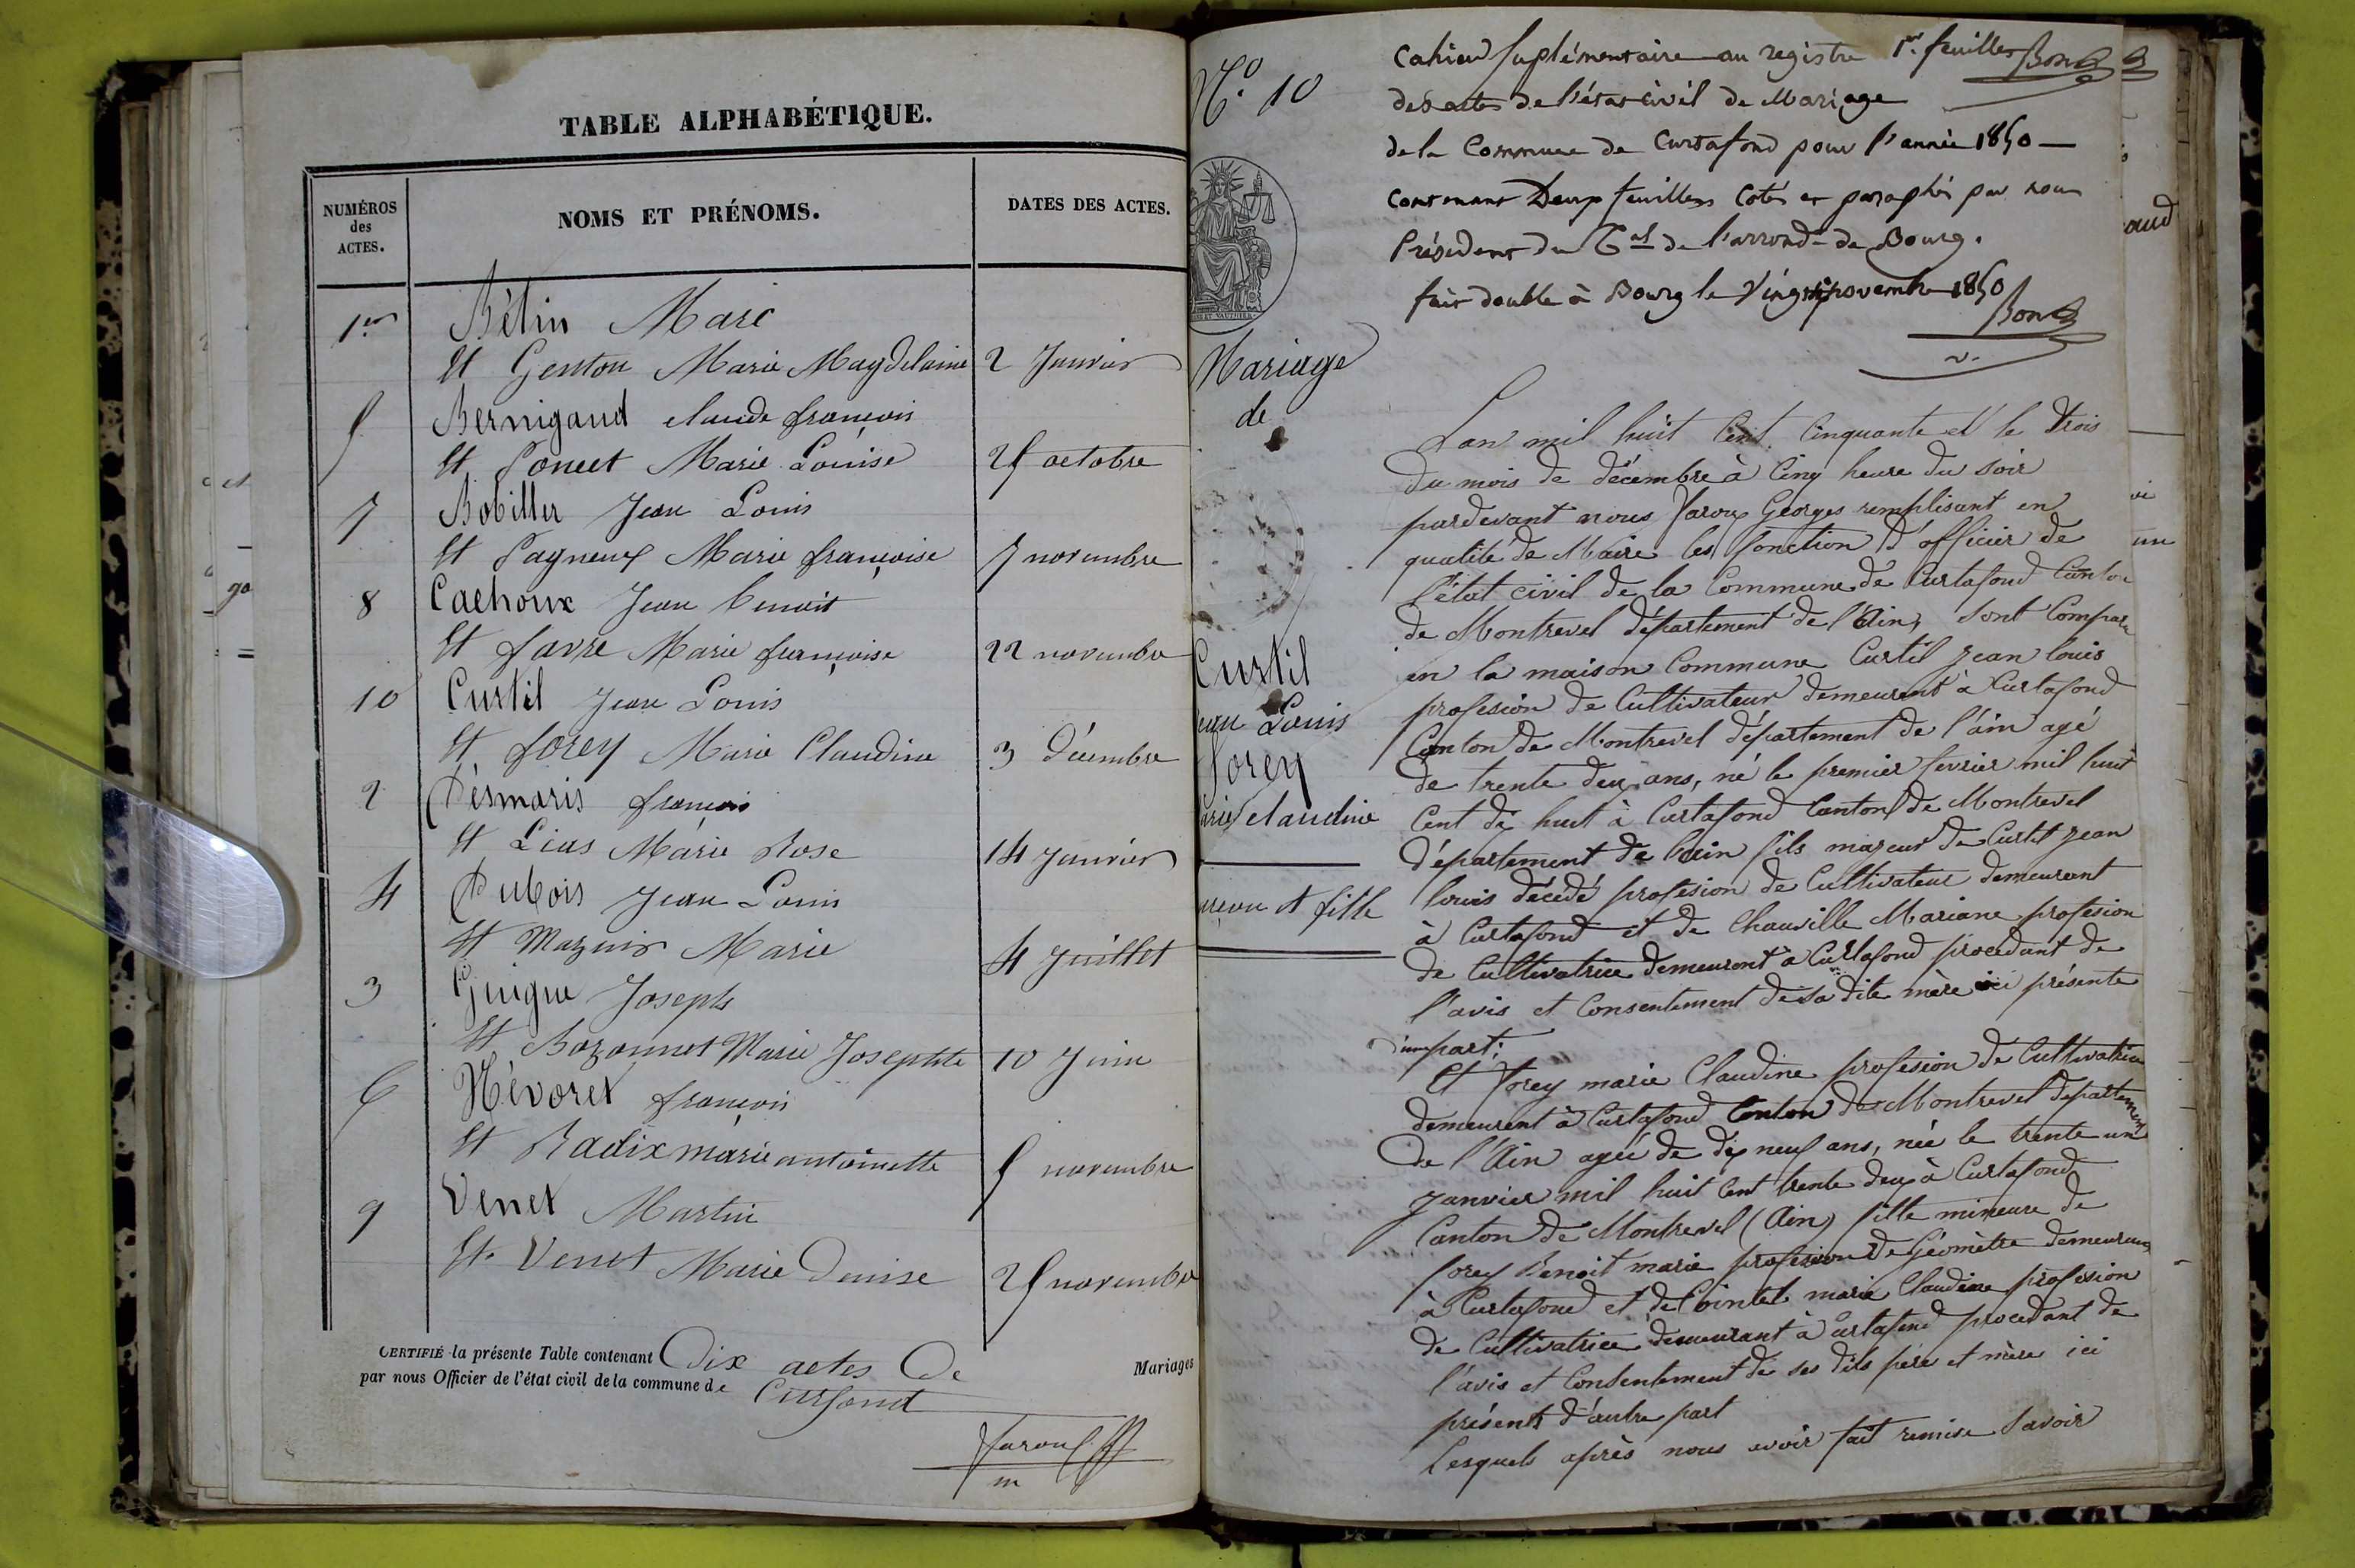 TABLE ALPHABÉTIQUE.
NUMÉROS
des
ACTES.
NOMS ET PRÉNOMS.
DATES DES ACTES.
1er Bélin Marc
Et Genton Marie Magdelaine 2 Janvier
5 Bernigaud claude françois
Et Poncet Marie Louise 25 octobre
7 Bobiller Jean Louis
Et Pagneux Marie françoise 7 novembre
8 Cachoux Jean benoit
Et favre Marie françoise 22 novembre
10 Curtil Jean Louis
Et forey Marie Claudine 3 Décembre
2 Désmaris françois
Et Lias Marie Rose 14 Janvier
4 Dubois Jean Louis
Et Mazuir Marie 4 Juillet
3 Guigue Joseph
Et Bozonnet Marie Josephte 10 Juin
6 Névoret françois
Et Radix marie antoinette 5 novembre
9 Venet Martin
Et Venet Marie Denise 25 novembre
CERTIFIÉ la présente Table contenant Dix actes De Mariages
par nous Officier de l'état civil de la commune de Curfond
faroux
m
No. 10
Mariage
de
Curtil
ean Louis
forey
arie claudine
arçon et fille
Cahier suplémentaire au registre 1er feuillet
des actes de l'état civil de Mariage
de la Commune de Curtafond pour l'année 1850
Contenant Deux feuillets Cotés et paraphés par nous
Président du Tal de l'arrondt de Bourg.
fait double à Bourg le Vingt novembre 1850
L'an mil huit Cent Cinquante et le trois
du mois de décembre à Cinq heure du soir
pardevant nous faroux Georges remplisant en
qualité de Maire les fonction d'officier de
l'état civil de la Commune de Curtafond Canton
de Montrevel département de l'Ain, sont Compara
en la maison Commune Curtil jean louis
profesion de Cultivateur demeurent à Curtafond
Canton de Montrevel département de l'ain agé
de trente deux ans, né le premier fevrier mil huit
Cent dix huit à Curtafond Canton de Montrevel
département de l'ain fils majeur de Curtil jean
louis décédé profesion de Cultivateur demeurant
à Curtafond et de Chanville Mariane profesion
de Cultivatrice demeurant à Curtafond procedant de
l'avis et Consentement de sa dite mère ici présente
d'une part;
Et forey marie Claudine profesion de Cultivatrice
demeurent à Curtafond Canton de Montrevel département
de l'Ain agée de dix neuf ans, née le trente un
janvier mil huit Cent trente deux à Curtafond
Canton de Montrevel (Ain) fille mineure de
forey Benoit marie profession de Géomètre demeurant
à Curtafond et de Cointet marie Claudine profesion
de Cultivatrice demeurant à Curtafond procedant de
l'avis et Consentement de ses dits père et mère ici
présents d'autre part
Lesquels après nous avoir fait remise Savoir